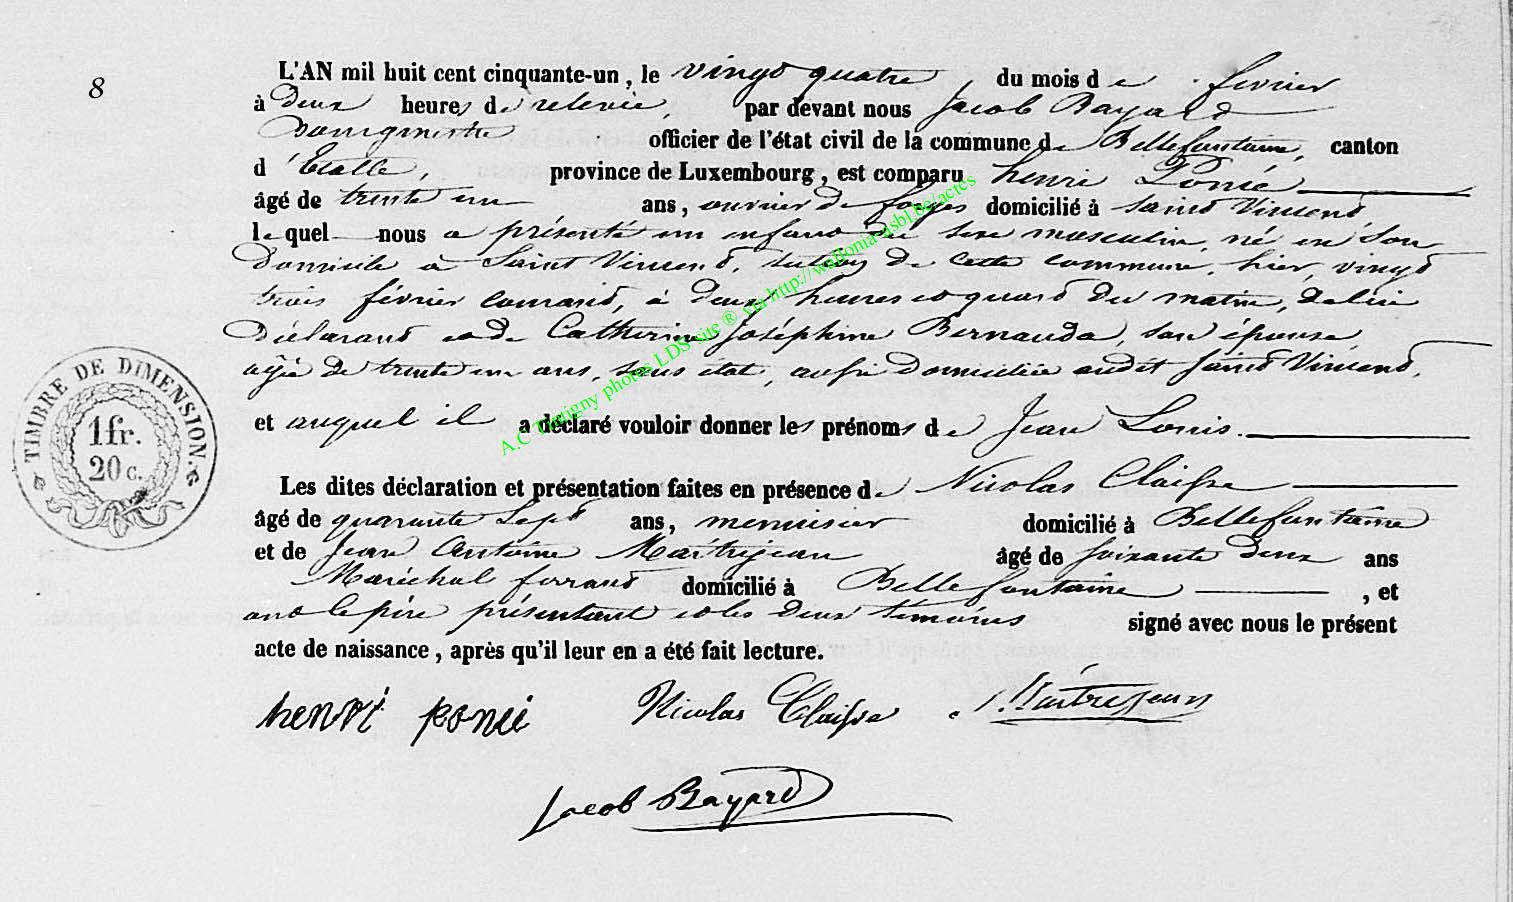 8
L'AN mil huit cent cinquante-un, le vingt quatre du mois de février
à deux heures de relevée, par devant nous Jacob Bayard
Bourgmestre officier de l'état civil de la commune de Bellefontaine, canton
d'Etalle, province de Luxembourg, est comparu henri Poncé
âgé de trente un ans, ouvrier de forges domicilié à Saint Vincent
lequel nous a présenté un enfant du sexe masculin, né en son
Domicile à Saint Vincent, section de cette commune, hier, vingt
trois février courant, à deux heures et quart du matin, de lui
Déclarant et de Catherine Joséphine Bernauda, son épouse,
agée de trente un ans, sans état, aussi domiciliée audit Saint Vincent,
et auquel il a déclaré vouloir donner les prénoms de Jean Louis.
Les dites déclaration et présentation faites en présence de Nicolas Claisse
âgé de quarante sept ans, menuisier domicilié à Bellefontaine
et de Jean Antoine Maitrejean âgé de soixante deux ans
Maréchal ferrant domicilié à Bellefontaine, et
ont le père présentant et les deux témoins signé avec nous le présent
acte de naissance, après qu'il leur en a été fait lecture.
henri poncé Nicolas Claisse Maitrejean
Jacob Bayard
TIMBRE DE DIMENSION.
1fr.
20 c.
A.C Tintigny photos LDS site ® via http://wallonia-asbl.be/actes